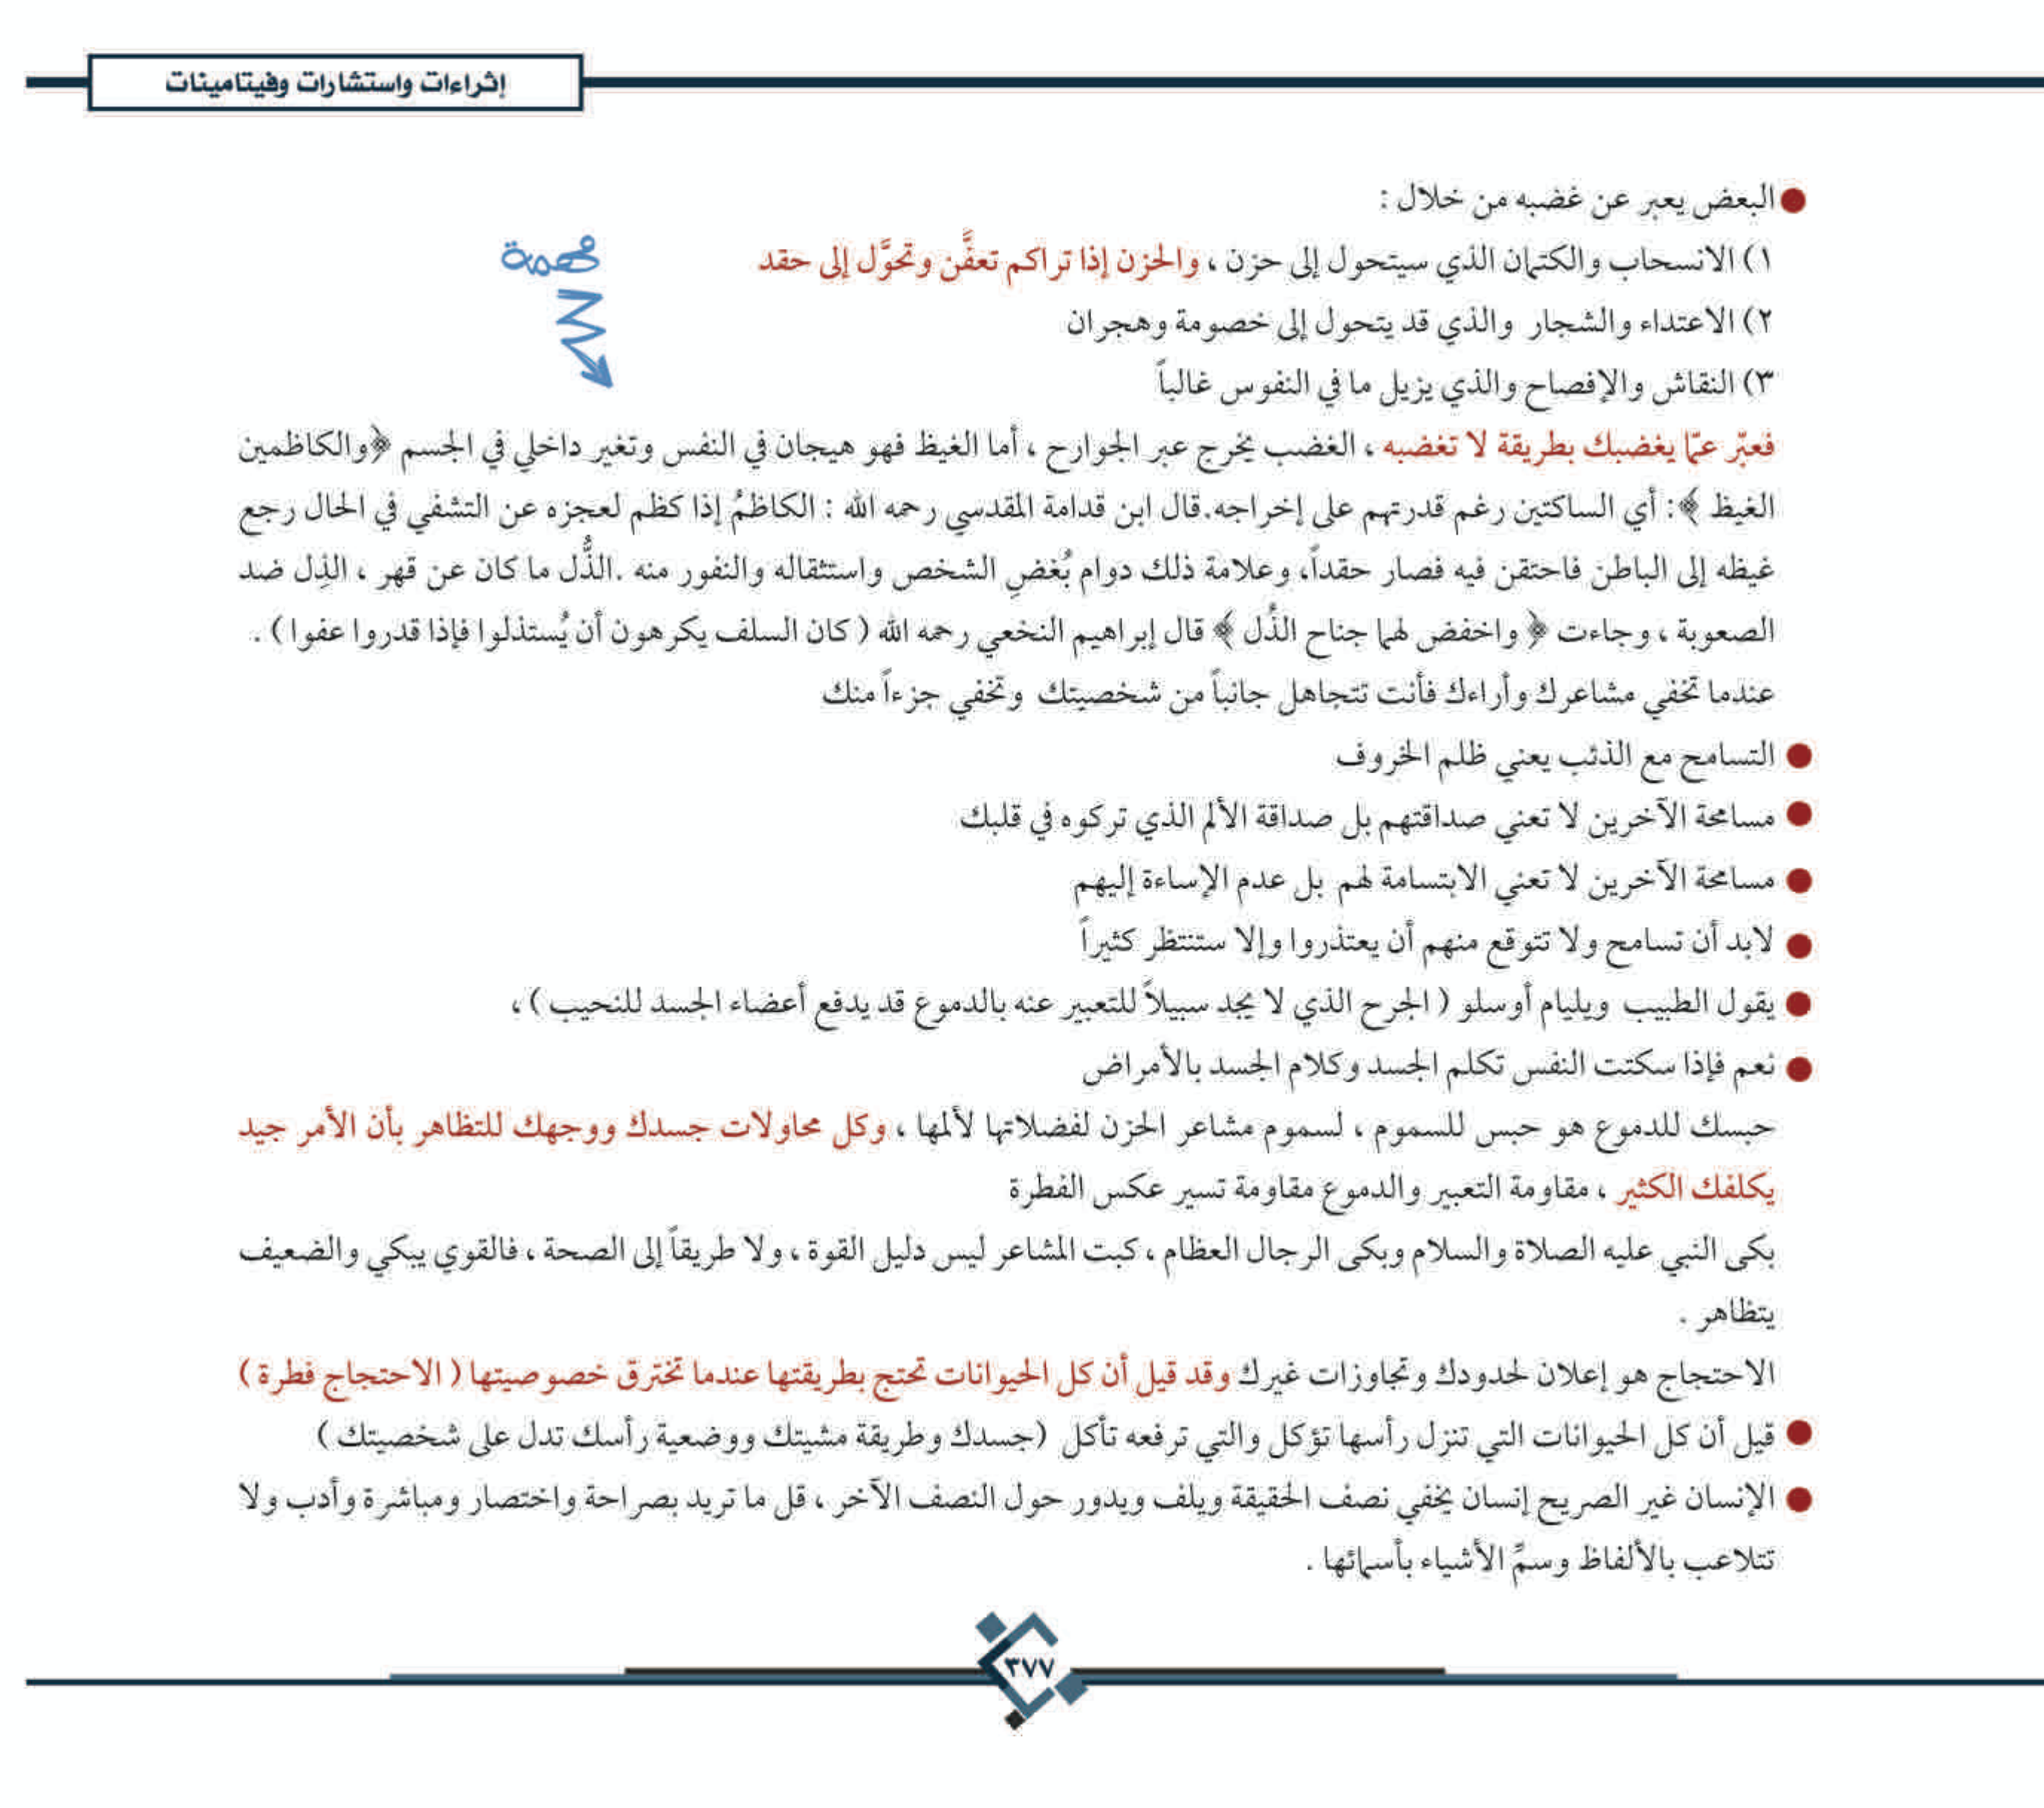 إثراءات واستشارات وفيتامينات
البعض يعبر عن غضبه من خلال :
١) الانسحاب والكتمان الذي سيتحول إلى حزن ، والحزن إذا تراكم تعفَّن وتحوَّل إلى حقد
مهمة
٢) الاعتداء والشجار والذي قد يتحول إلى خصومة وهجران
٣) النقاش والإفصاح والذي يزيل ما في النفوس غالباً
فعبّر عمّا يغضبك بطريقة لا تغضبه ، الغضب يخرج عبر الجوارح ، أما الغيظ فهو هيجان في النفس وتغير داخلي في الجسم ﴿والكاظمين
الغيظ ﴾: أي الساكتين رغم قدرتهم على إخراجه.قال ابن قدامة المقدسي رحمه الله : الكاظمُ إذا كظم لعجزه عن التشفي في الحال رجع
غيظه إلى الباطن فاحتقن فيه فصار حقداً، وعلامة ذلك دوام بُغضِ الشخص واستثقاله والنفور منه .الذُّل ما كان عن قهر ، الذِل ضد
الصعوبة ، وجاءت ﴿ واخفض لهما جناح الذُل ﴾ قال إبراهيم النخعي رحمه الله ( كان السلف يكرهون أن يُستذلوا فإذا قدروا عفوا ) .
عندما تخفي مشاعرك وأراءك فأنت تتجاهل جانباً من شخصيتك وتخفي جزءاً منك
التسامح مع الذئب يعني ظلم الخروف
مسامحة الآخرين لا تعني صداقتهم بل صداقة الألم الذي تركوه في قلبك
مسامحة الآخرين لا تعني الابتسامة لهم بل عدم الإساءة إليهم
لابد أن تسامح ولا تتوقع منهم أن يعتذروا وإلا ستنتظر كثيراً
يقول الطبيب ويليام أوسلو ( الجرح الذي لا يجد سبيلاً للتعبير عنه بالدموع قد يدفع أعضاء الجسد للنحيب ) ،
نعم فإذا سكتت النفس تكلم الجسد وكلام الجسد بالأمراض
حبسك للدموع هو حبس للسموم ، لسموم مشاعر الحزن لفضلاتها لألمها ، وكل محاولات جسدك ووجهك للتظاهر بأن الأمر جيد
يكلفك الكثير ، مقاومة التعبير والدموع مقاومة تسير عكس الفطرة
بكى النبي عليه الصلاة والسلام وبكى الرجال العظام ، كبت المشاعر ليس دليل القوة ، ولا طريقاً إلى الصحة ، فالقوي يبكي والضعيف
يتظاهر .
الاحتجاج هو إعلان لحدودك وتجاوزات غيرك وقد قيل أن كل الحيوانات تحتج بطريقتها عندما تخترق خصوصيتها ( الاحتجاج فطرة )
قيل أن كل الحيوانات التي تنزل رأسها تؤكل والتي ترفعه تأكل (جسدك وطريقة مشيتك ووضعية رأسك تدل على شخصيتك )
الإنسان غير الصريح إنسان يخفي نصف الحقيقة ويلف ويدور حول النصف الآخر ، قل ما تريد بصراحة واختصار ومباشرة وأدب ولا
تتلاعب بالألفاظ وسمِّ الأشياء بأسمائها .
٣٧٧